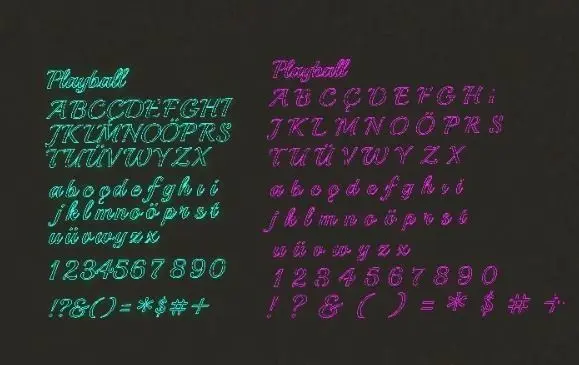 Playball
ABCÇDEFGHI
JKLMNOÖPRS
TUÜVWYZX
abcçdefghıi
jklmnoöprst
uüvwyzx
1234567890
!?&()=*$#+
Playball
A B C Ç D E F G H i
J K L M N O Ö P R S
T U Ü V W Y Z X
a b c ç d e f g h ı i
j k l m n o ö p r s t
u ü v w y z x
1 2 3 4 5 6 7 8 9 0
! ? & ( ) = * $ # +